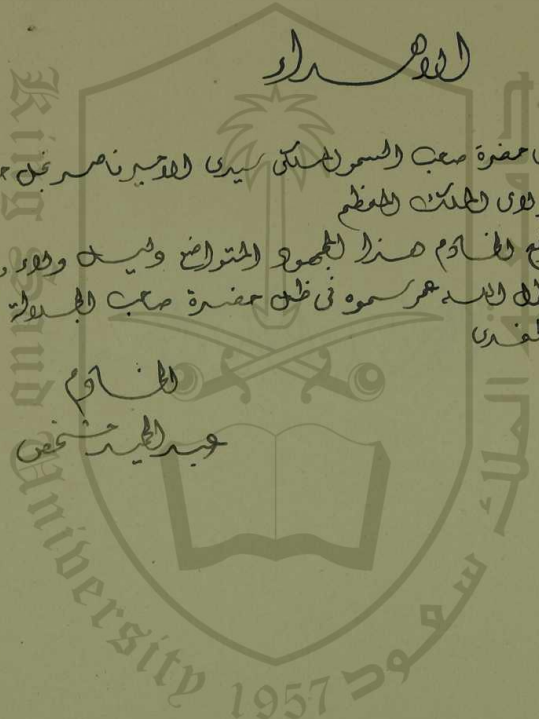 الاهداء
حضرة صاحب السمو الملكى سيدى الامير ناصر نجل
مولاى الملك المعظم
الخادم هذا المجهود المتواضع دليل ولاء
الله عمر سموه فى ظل حضرة صاحب الجلالة
المفدى
الخادم
عبد الحميد مشخص
King Saud University 1957
جامعة الملك سعود